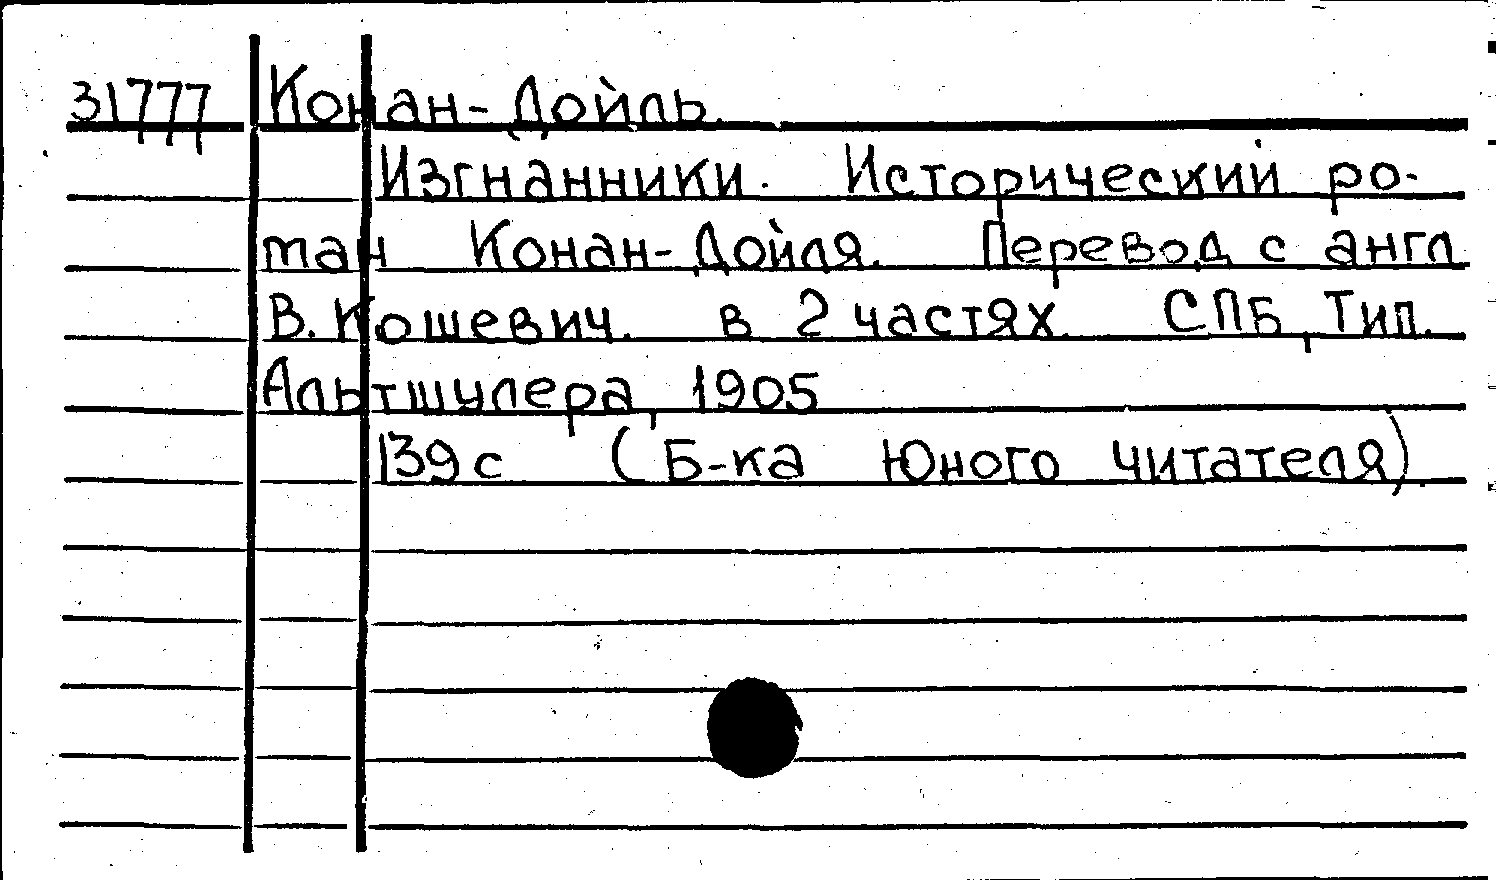 31777 Конан-Дойль.
Изгнанники. Исторический ро-
ман Конан-Дойля. Перевод с англ
В. Кошевич. в 2 частях СПБ, Тип.
Альтшулера, 1905
139 с (Б-ка Юного Читателя).